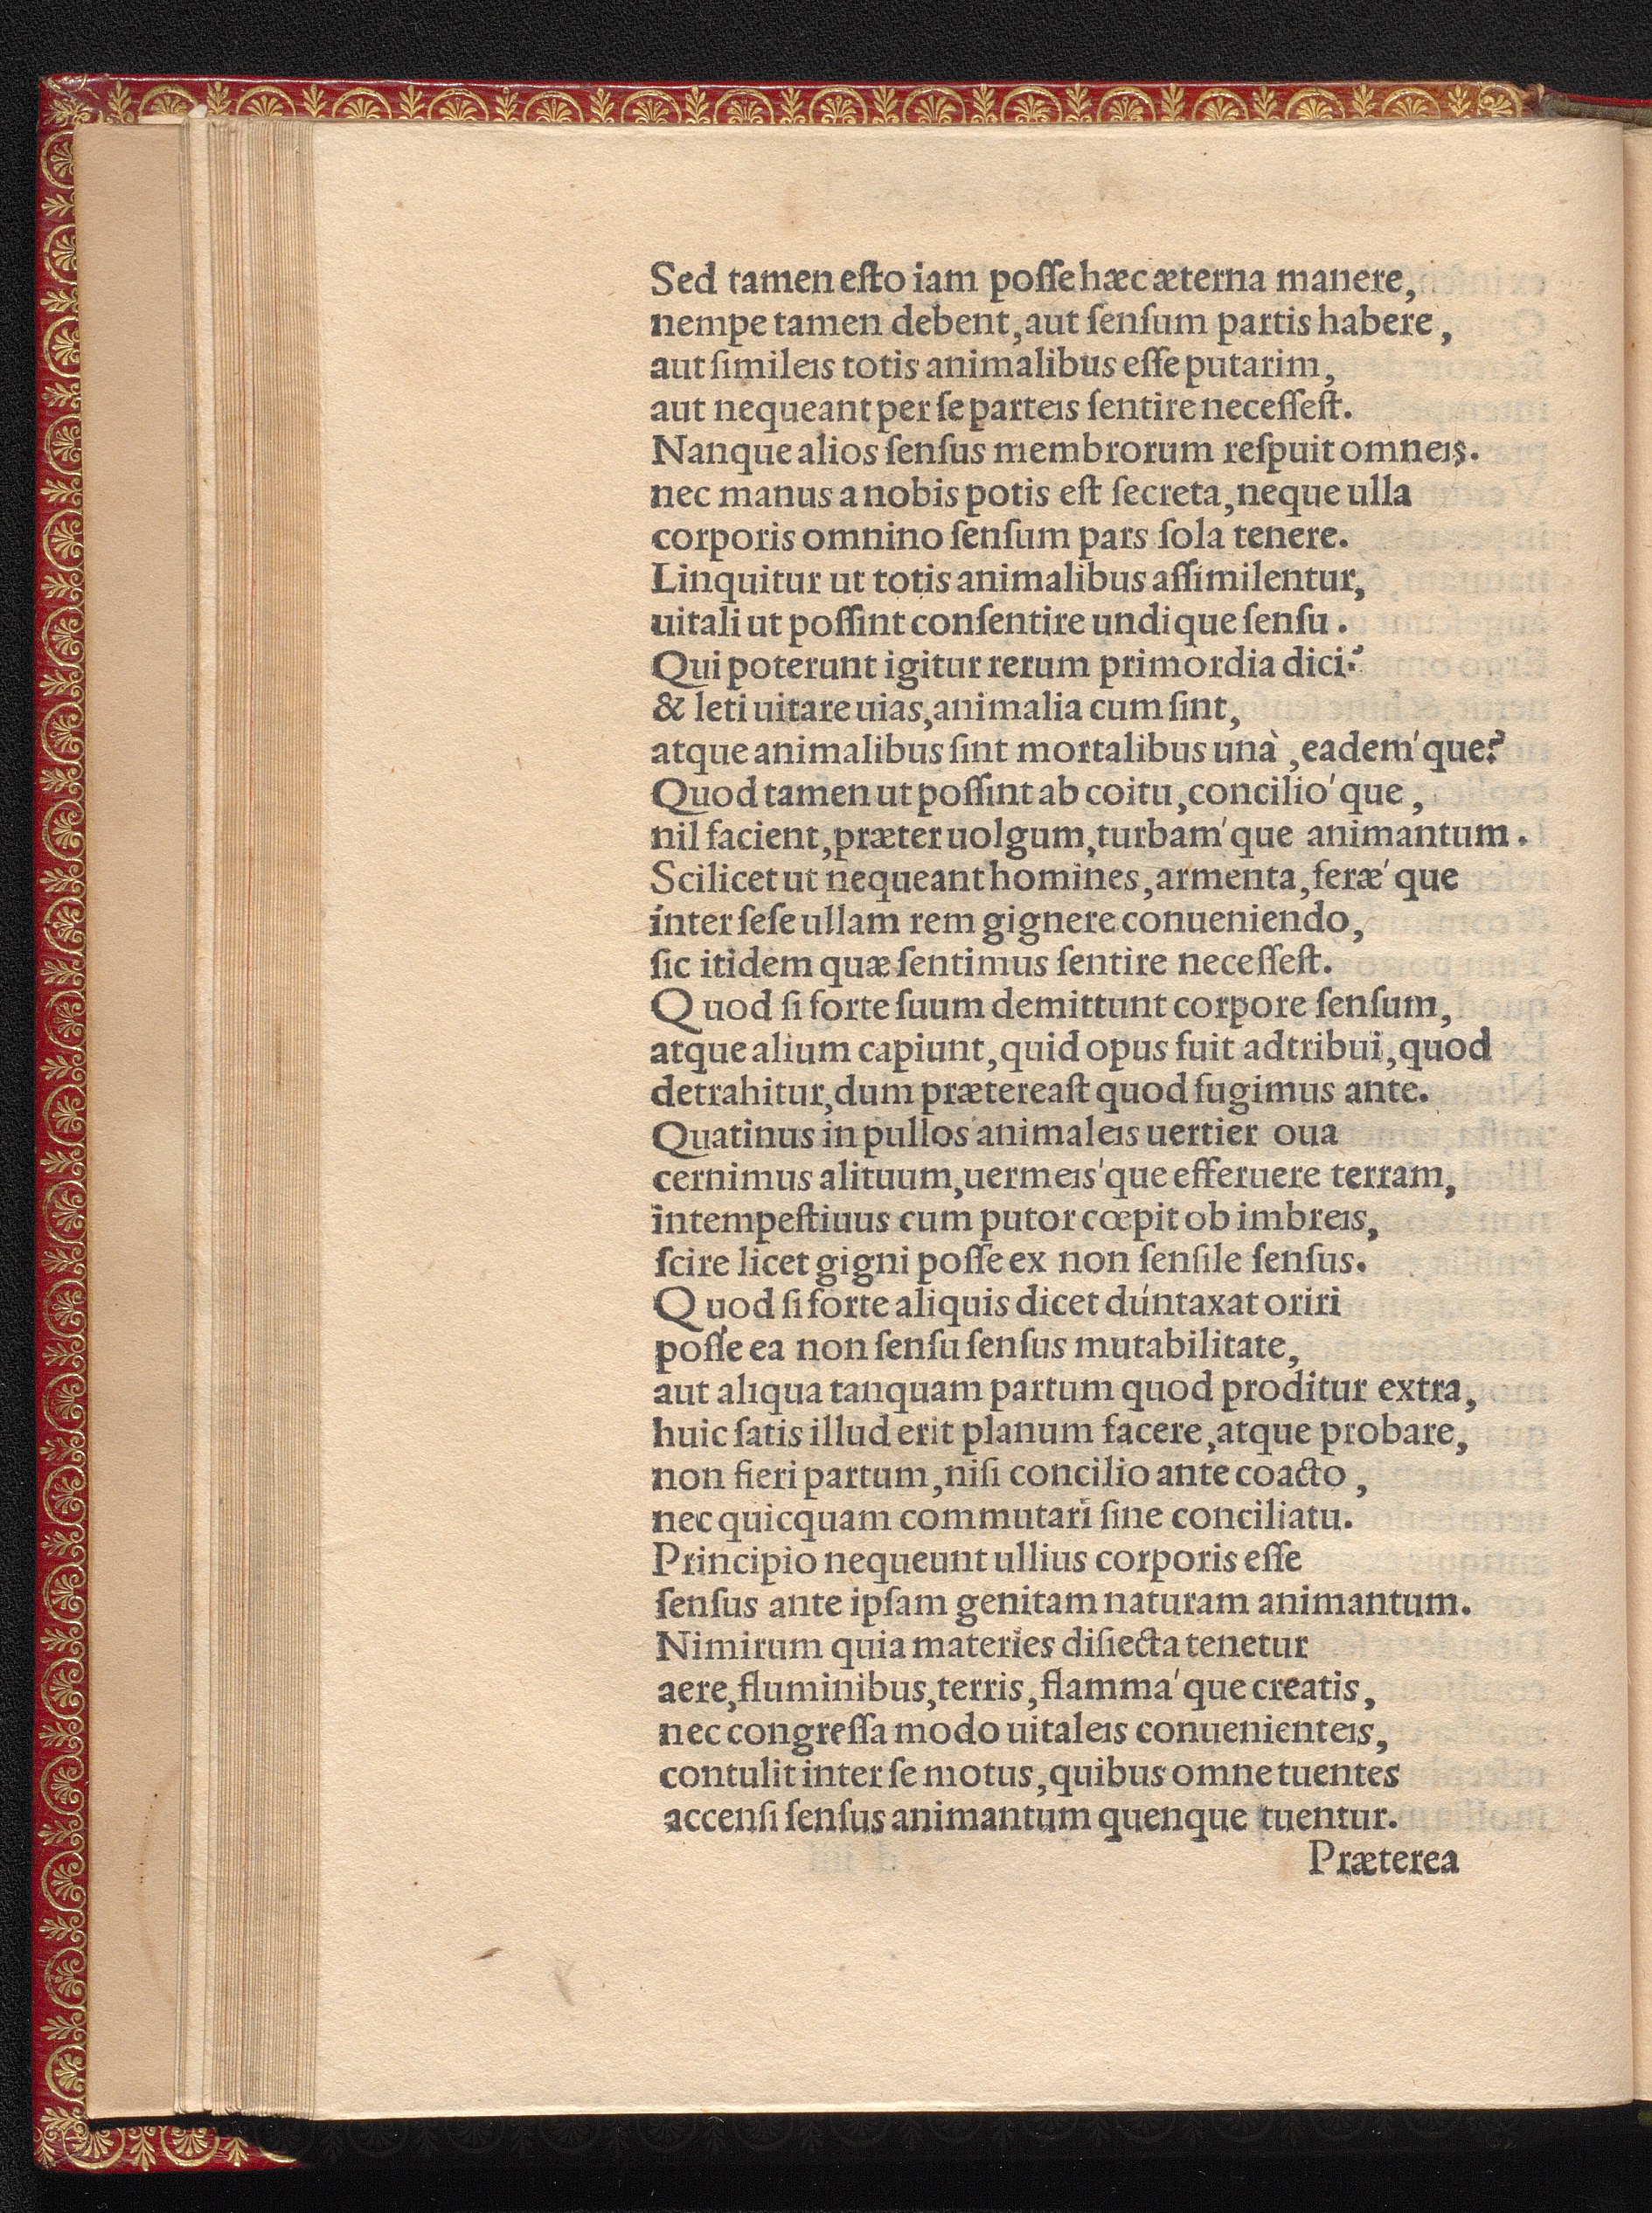 Sed tamen eſto iam poſſe hæc æterna manere,
nempe tamen debent, aut ſenſum partis habere,
aut ſimileis totis animalibus eſſe putarim,
aut nequeant per ſe parteis ſentire neceſſeſt.
Nanque alios ſenſus membrorum reſpuit omneis.
nec manus a nobis potis eſt ſecreta, neque ulla
corporis omnino ſenſum pars ſola tenere.
Linquitur ut totis animalibus aſſimilentur,
uitali ut poſſint conſentire undique ſenſu.
Qui poterunt igitur rerum primordia dici?
& leti uitare uias, animalia cum ſint,
atque animalibus ſint mortalibus unà, eadem'que?
Quod tamen ut poſſint ab coitu, concilio'que,
nil facient, præter uolgum, turbam'que animantum.
Scilicet ut nequeant homines, armenta, feræ'que
inter ſeſe ullam rem gignere conueniendo,
ſic itidem quæ ſentimus ſentire neceſſeſt.
Quod ſi forte ſuum demittunt corpore ſenſum,
atque alium capiunt, quid opus fuit adtribui, quod
detrahitur, dum prætereaſt quod fugimus ante.
Quatinus in pullos animaleis uertier oua
cernimus alituum, uermeis'que efferuere terram,
intempeſtiuus cum putor cœpit ob imbreis,
ſcire licet gigni poſſe ex non ſenſile ſenſus.
Quod ſi forte aliquis dicet dúntaxat oriri
poſſe ea non ſenſu ſenſus mutabilitate,
aut aliqua tanquam partum quod proditur extra,
huic ſatis illud erit planum facere, atque probare,
non fieri partum, niſi concilio ante coacto,
nec quicquam commutari ſine conciliatu.
Principio nequeunt ullius corporis eſſe
ſenſus ante ipſam genitam naturam animantum.
Nimirum quia materies diſiecta tenetur
aere, fluminibus, terris, flamma'que creatis,
nec congreſſa modo uitaleis conuenienteis,
contulit inter ſe motus, quibus omne tuentes
accenſi ſenſus animantum quenque tuentur.
Præterea